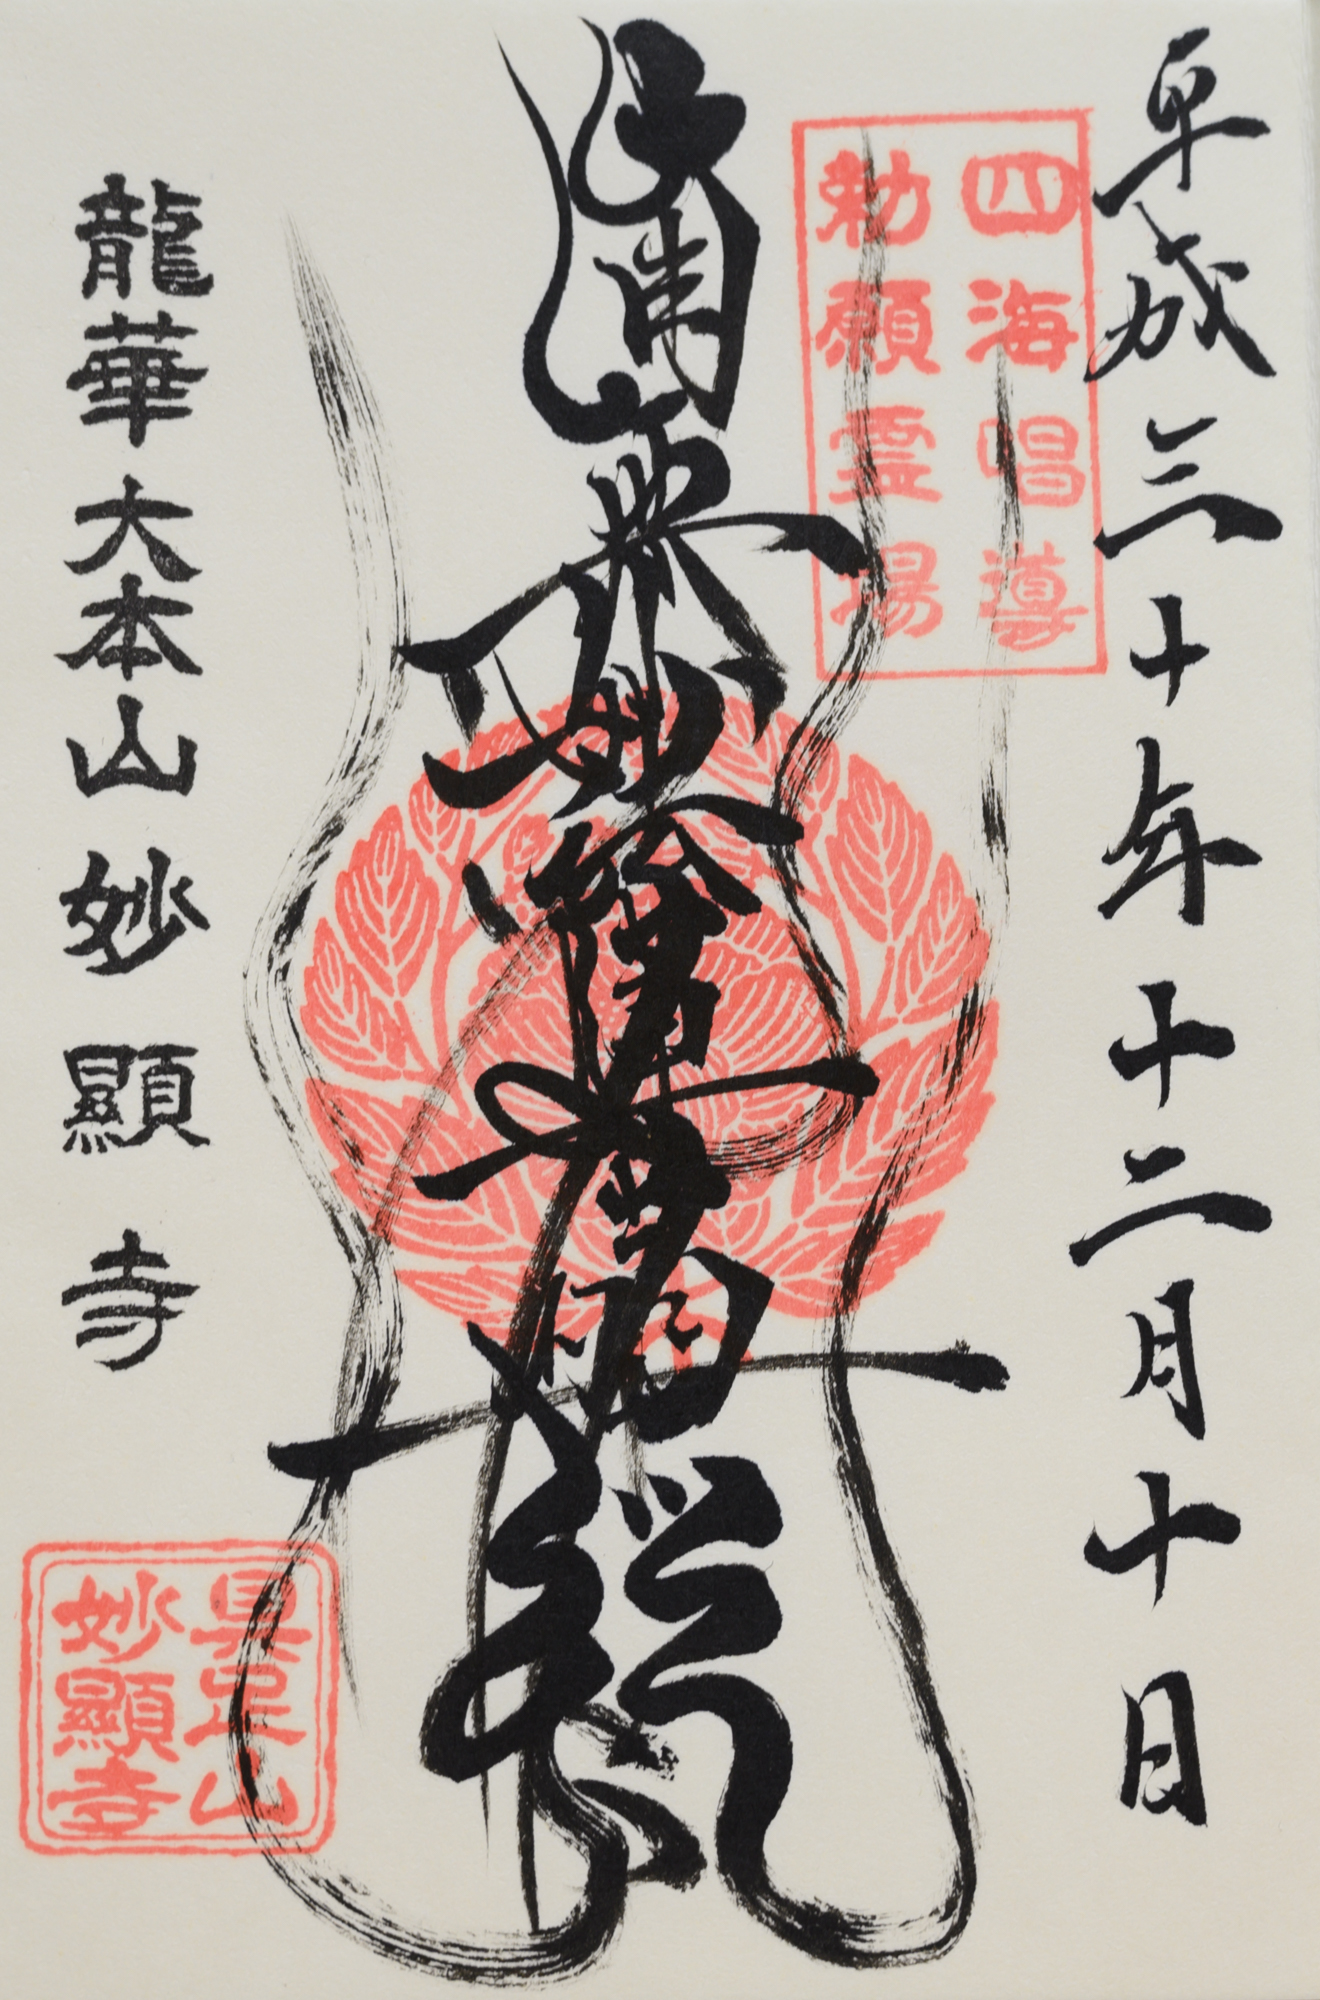 平成三十年十二月十日
四海唱導
勅願霊場
南無妙法蓮華経
龍華大本山妙顯寺
具足山
妙顯寺